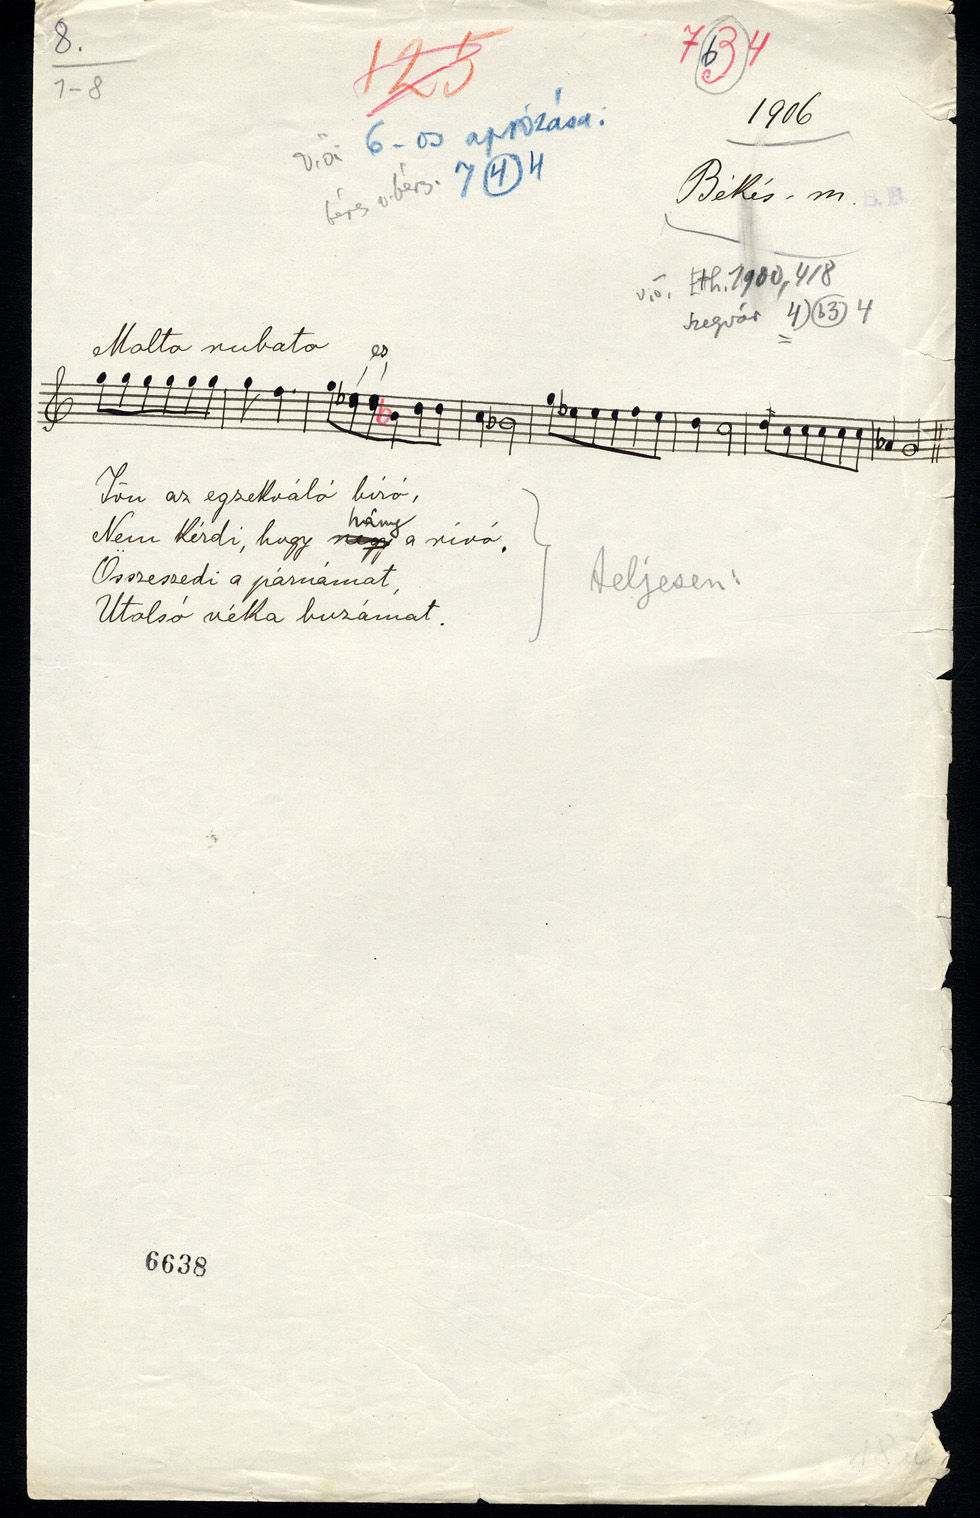 8.
1-8
125
7 b3 4
1906
v.ö: 6-os aprózása:
7 4 4
Békés-m. B.B.
v.ö. Eth. 1900, 418
Szegvár 4) b3 4
Molto rubato
Jön az egzekváló bíró,
Nem kérdi, hogy hány a rívó,
Összeszedi a párnámat,
Utolsó véka buzámat.
teljesen:
6638